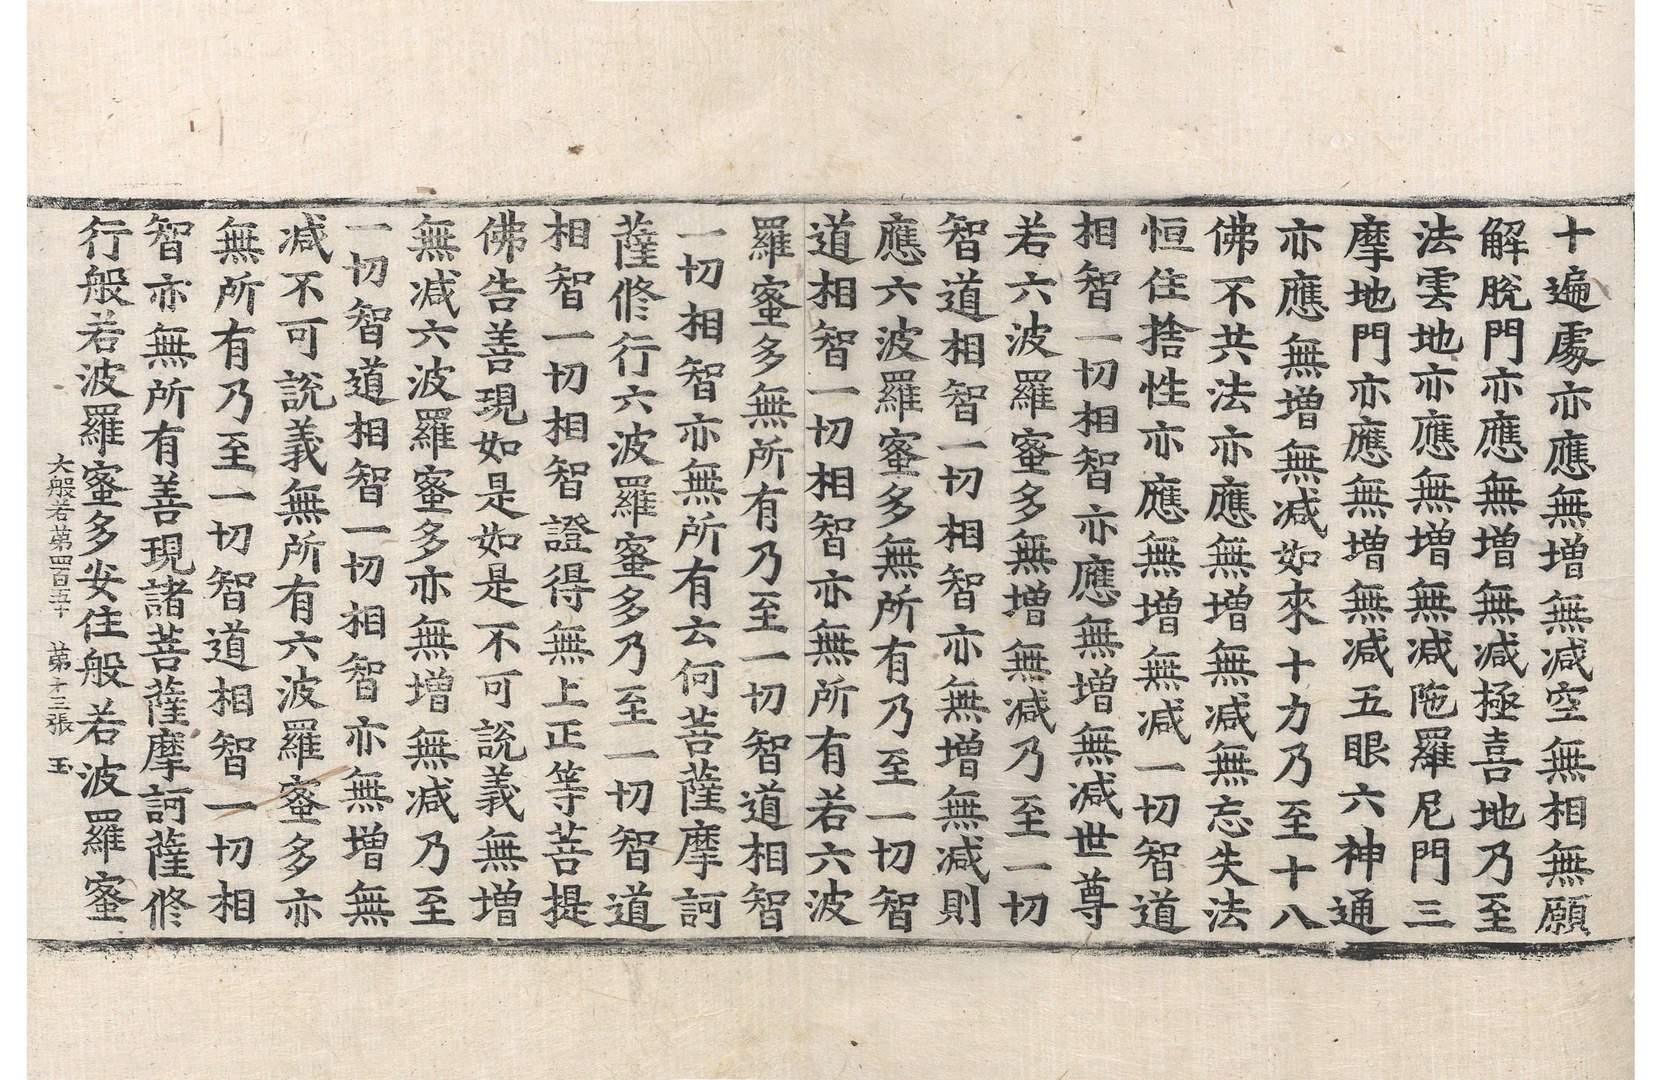 十遍處亦應無增無減空無相無願
解脫門亦應無增無減極喜地乃至
法雲地亦應無增無減陁羅尼門三
摩地門亦應無增無減五眼六神通
亦應無增無減如來十力乃至十八
佛不共法亦應無增無減無忘失法
恒住捨性亦應無增無減一切智道
相智一切相智亦應無增無減世尊
若六波羅蜜多無增無減乃至一切
智道相智一切相智亦無增無減則
應六波羅蜜多無所有乃至一切智
道相智一切相智亦無所有若六波
羅蜜多無所有乃至一切智道相智
一切相智亦無所有云何菩薩摩訶
薩修行六波羅蜜多乃至一切智道
相智一切相智證得無上正等菩提
佛告善現如是如是不可說義無增
無減六波羅蜜多亦無增無減乃至
一切智道相智一切相智亦無增無
減不可說義無所有六波羅蜜多亦
無所有乃至一切智道相智一切相
智亦無所有善現諸菩薩摩訶薩修
行般若波羅蜜多安住般若波羅蜜
大般若第四百五十 第十三張 玉